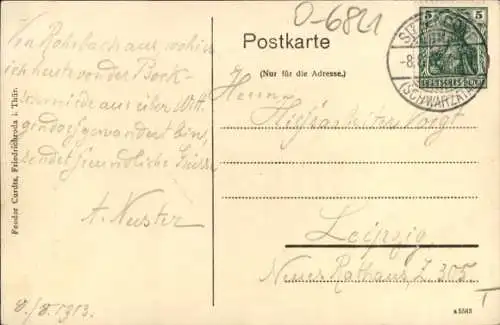 O-6821
Von Rohrbach aus, wohin
ich heute von der Bock-
schmiede aus über Witt-
gendorf gewandert bin,
sendet freundliche Grüsse
A. Neuster
8./8. 1913.
Feodor Cardts, Friedrichroda i. Thür.
Postkarte
(Nur für die Adresse.)
Herrn
Voigt
Leipzig
Neues Rathaus, Z. 305.
5 5
DEUTSCHES REICH
-8.
(SCHWARZA